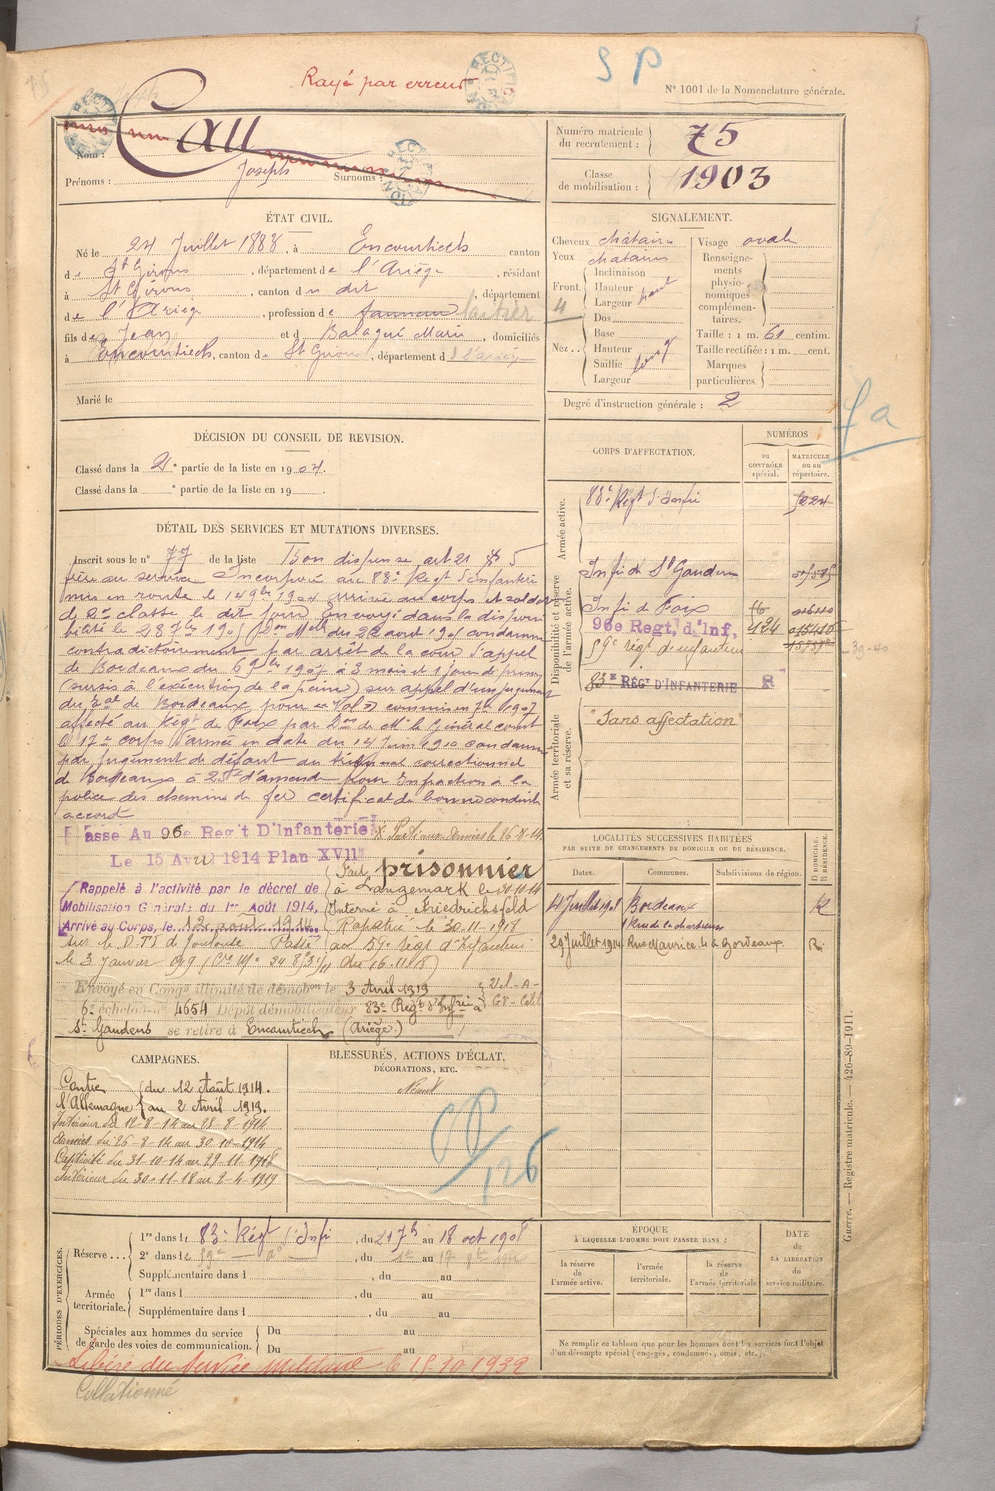 75
Rayé par erreur
RECTIFICATION
S P
N° 1001 de la Nomenclature générale.
Nom : Cau
Prénoms : Joseph Surnoms :
Numéro matricule du recrutement : 75
Classe de mobilisation : 1903
ÉTAT CIVIL.
Né le 24 Juillet 1883, à Encourtiech canton
de St Girons, département de l'Ariège, résidant
à St Girons, canton du dit, département
de l'Ariège, profession de laitier
fils de Jean et de Balagué Marie, domiciliés
à Encourtiech, canton de St Girons, département d l'Ariège
Marié le
SIGNALEMENT.
Cheveux châtains
Yeux châtains
Front. Inclinaison
Hauteur
Largeur haut
4
Nez.. Dos
Base
Hauteur
Saillie long
Largeur
Visage ovale
Renseignements physionomiques complémentaires.
Taille : 1 m. 61 centim.
Taille rectifiée : 1 m. cent.
Marques particulières.
Degré d'instruction générale : 2
DÉCISION DU CONSEIL DE REVISION.
Classé dans la 2e partie de la liste en 1904.
Classé dans la e partie de la liste en 19
CORPS D'AFFECTATION.
NUMÉROS
AU CONTRÔLE spécial.
MATRICULE ou au répertoire.
Armée active.
83e Régt d'Infie
Disponibilité et réserve de l'armée active.
Infie de St Gaudens
Infie de Foix
96e Regt, d'Inf, 424
59e régt d'infanterie
39-40
83E RÉGT D'INFANTERIE R
Armée territoriale et sa réserve.
"Sans affectation"
DÉTAIL DES SERVICES ET MUTATIONS DIVERSES.
Inscrit sous le n° 77 de la liste Bon dispensé art 21 § 5
frère au service Incorporé au 83e Régt d'Infanterie
mis en route le 14 9bre 1904 arrivé au corps et soldat
de 2e classe le dit jour Envoyé dans la disponi
bilité le 28 7bre 190 du 22 aout 190 condamné
contradictoirement par arrêt de la cour d'appel
de Bordeaux du 6 9bre 1907 à 3 mois et 1 jour de prison
(sursis à l'exécution de la peine) sur appel d'un jugement
du de Bordeaux pour "Vol" commis en 7bre 1907
affecté au Régt de Foix par Don de Mr le Général comt
le 17e corps d'armée en date du 14 Juin 1910 condamné
par jugement de défaut du tribunal correctionnel
de Bordeaux à 25f d'amende pour Infraction à la
police des chemins de fer certificat de bonne conduite
accordé
Passé Au 96e Regt D'Infanterie
Le 15 Avril 1914 Plan XVII
Parti aux Armées le 26-8-14
Rappelé à l'activité par le décret de
Mobilisation Générale du 1er Août 1914,
Arrivé au Corps, le 12 août 1914
Fait prisonnier
à Langemark le 30-10-14
Interné à Friedrichsfeld
Rapatrié le 30-11-1918
sur le D.T.I de Toulouse Passé au 59e régt d'Infanterie
le 3 Janvier 1919 du 16-11-18)
Envoyé en Congé illimité de démobon le 3 Avril 1919
6e échelon n° 4654 Dépôt démobilisateur 83e Régt d'Infie à
St Gaudens se retire à Encourtiech (Ariège)
LOCALITÉS SUCCESSIVES HABITÉES
PAR SUITE DE CHANGEMENTS DE DOMICILE OU DE RÉSIDENCE.
Dates. Communes. Subdivisions de région. D DOMICILE R RÉSIDENCE.
4 Juillet 1908 Bordeaux R
1 Rue de la chartreuse
29 Juillet 1914 Rue Maurice 4 à Bordeaux R
CAMPAGNES.
Contre l'Allemagne du 12 Août 1914.
au 2 Avril 1919.
Intérieur du 12-8-14 au 25-8-1914
Armées du 26-8-14 au 30-10-1914
Captivité du 31-10-14 au 29-11-1918
Intérieur du 30-11-18 au 2-4-1919
BLESSURES, ACTIONS D'ÉCLAT,
DÉCORATIONS, ETC.
Néant
126
PÉRIODES D'EXERCICES.
Réserve... 1re dans le 83e Régt d'Infie, du 21 7bre au 18 oct 1908
2e dans le 59e — do, du 1er au 17
Supplémentaire dans l , du au
Armée territoriale. 1re dans l , du au
Supplémentaire dans l , du au
Spéciales aux hommes du service de garde des voies de communication. Du au
Du au
ÉPOQUE
À LAQUELLE L'HOMME DOIT PASSER DANS :
la réserve de l'armée active.
l'armée territoriale.
la réserve de l'armée territoriale
DATE DE LA LIBÉRATION du service militaire.
Ne remplir ce tableau que pour les hommes dont les services font l'objet d'un décompte spécial (engagés, condamnés, omis, etc.).
Libéré du Service Militaire le 15.10.1932
Collationné
Guerre. — Registre matricule. — 426-89-1911.